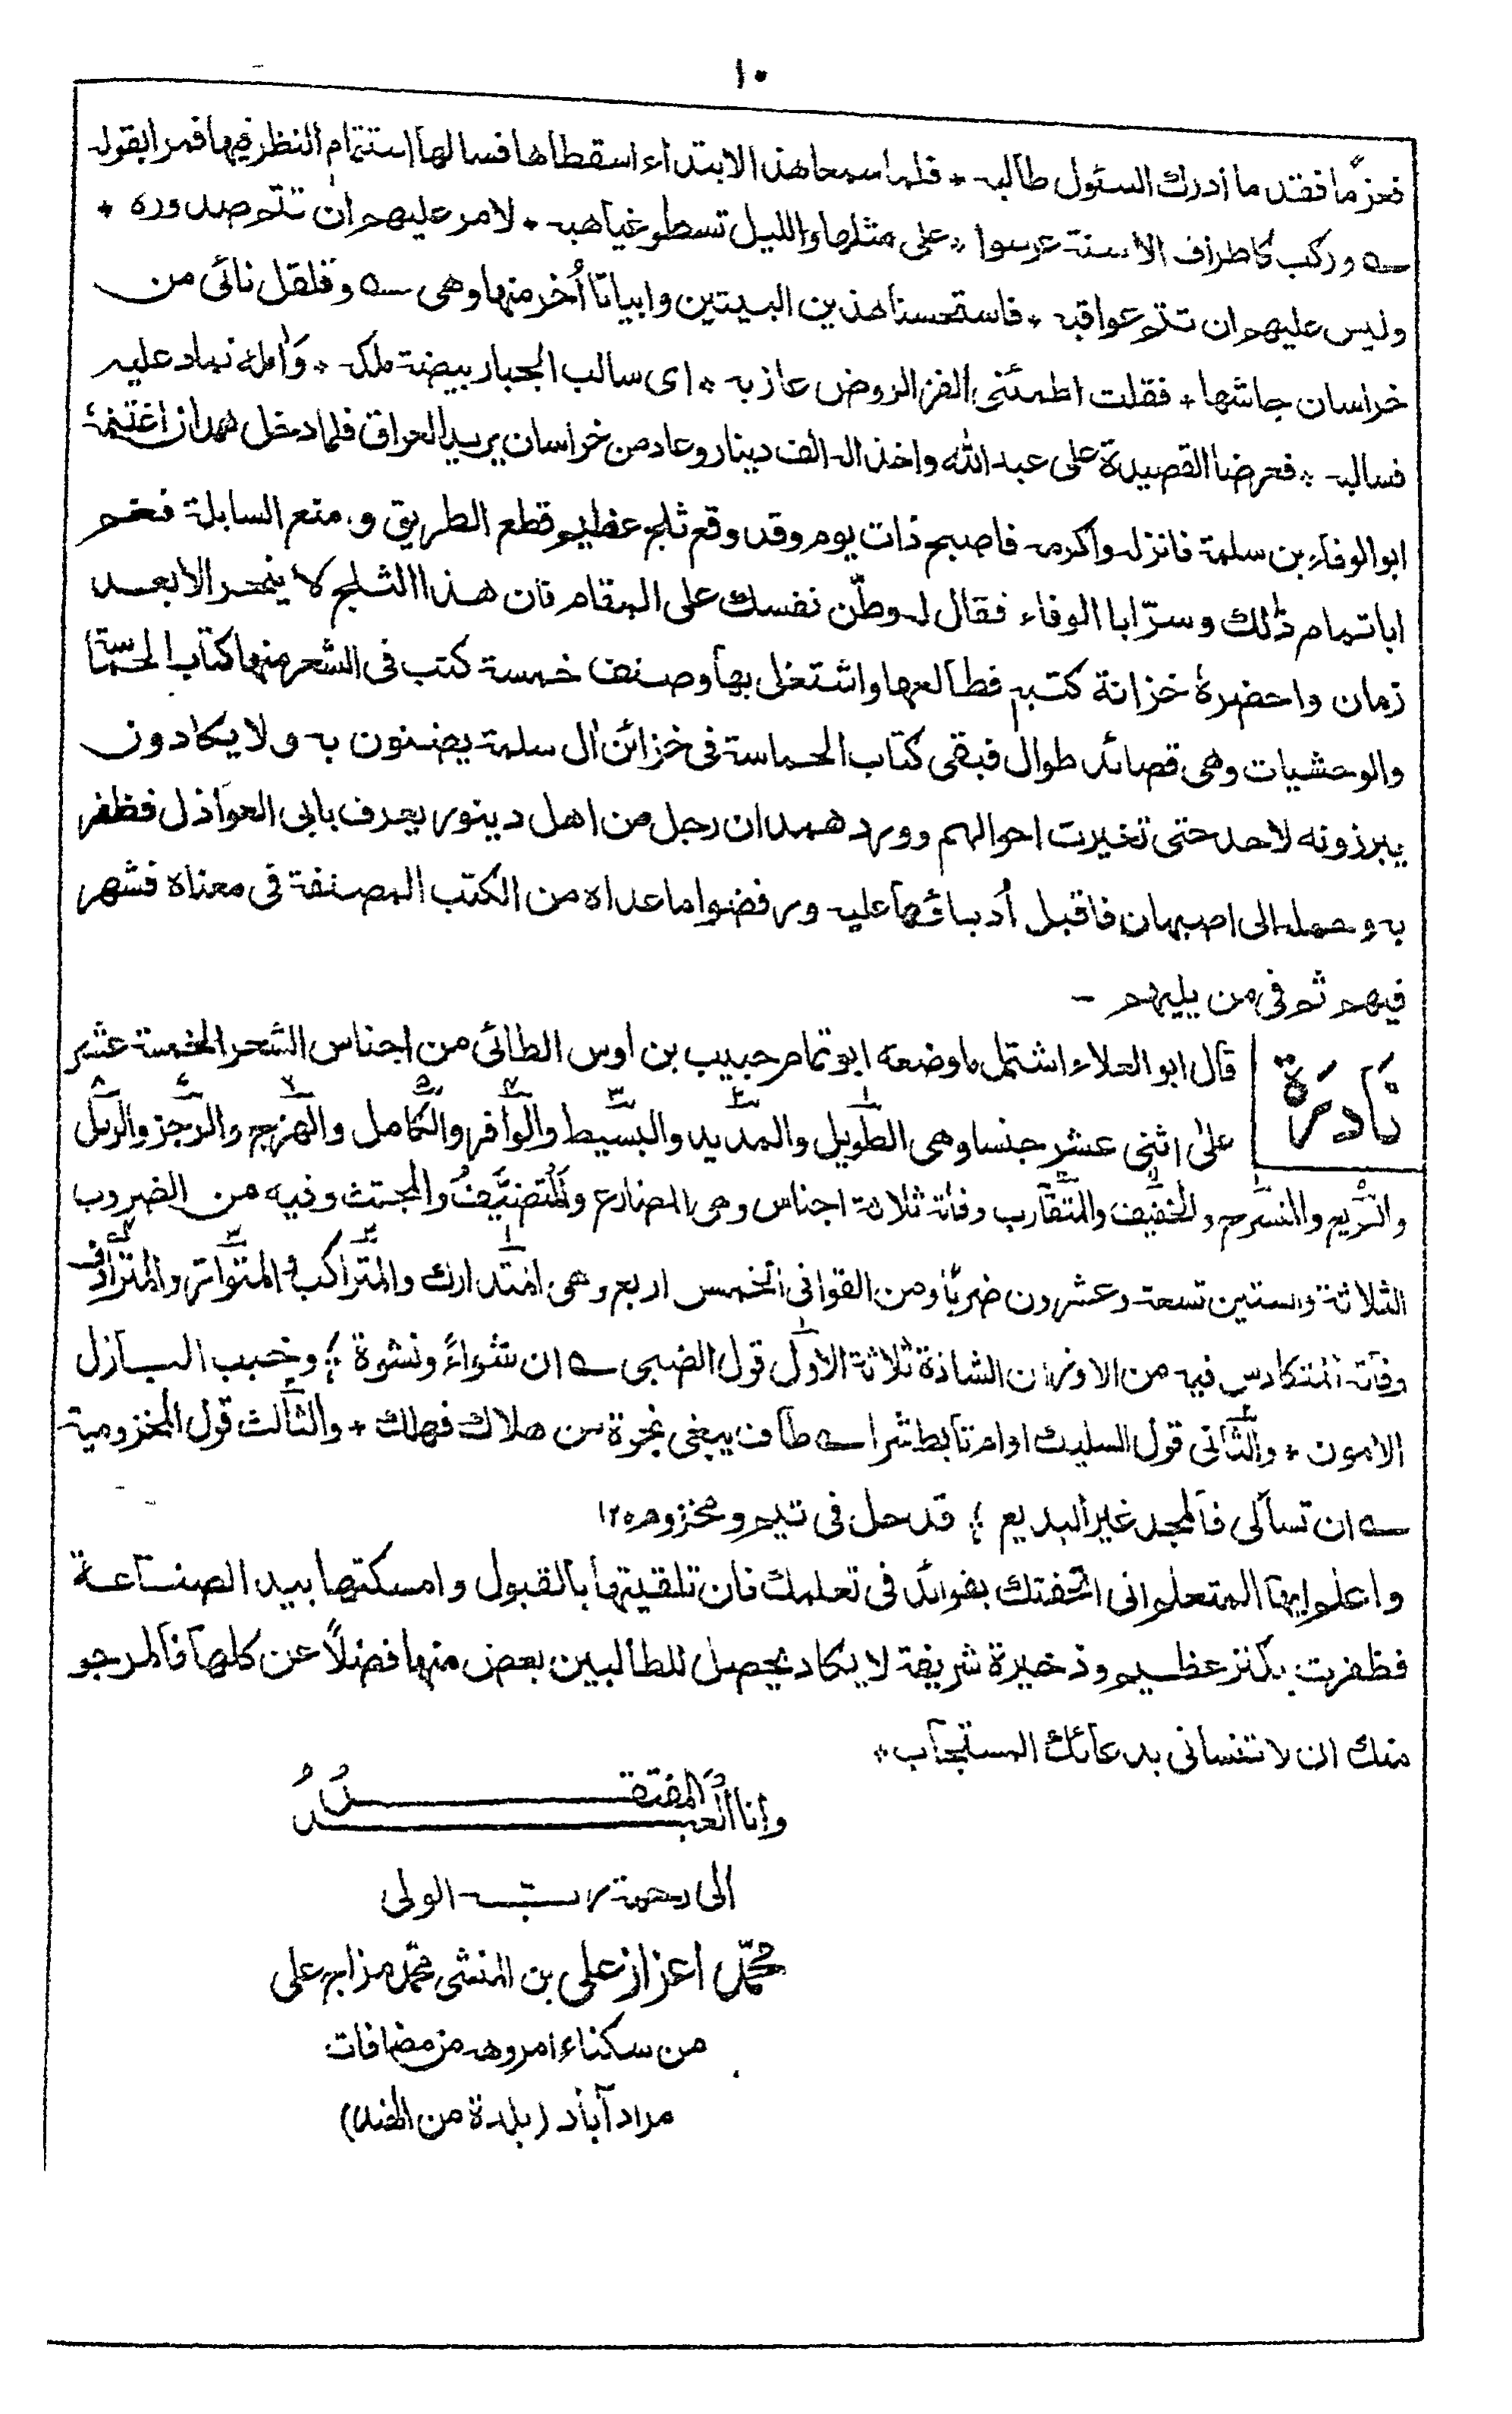 ١٠
فعزمًا فقد ما ادرك السئول طالبه * فلما سمعا هذا الابتداء اسقطاها فسالها استتمام النظر فيها فمرا بقوله
؎ وركب كاطراف الاسنة عرسوا * على مثلها والليل تسطو غياهبه * لامر عليهم ان تتم صدوره *
وليس عليهم ان تتم عواقبه * فاستحسنا هذين البيتين وابياتا أخر منها وهى ؎ وقلقل نائى من
خراسان جاشها * فقلت اطمئنى انضر الروض عازبه * اى سالب الجبار بيضة ملكه * وآمله غاد عليه
فسالبه * فعرضا القصيدة على عبد الله واخذ اله الف دينار وعاد من خراسان يريد العراق فلما دخل همدان اغتنمه
ابو الوفاء بن سلمة فانزله واكرمه فاصبح ذات يوم وقد وقع ثلج عظيم قطع الطريق و منع السابلة فغم
اباتمام ذلك وسرّ ابا الوفاء فقال له وطّن نفسك على المقام فان هذا الثلج لا ينحسر الا بعد
زمان واحضره خزانة كتبه فطالعها واشتغل بها وصنف خمسة كتب فى الشعر منها كتاب الحماسة
والوحشيات وهى قصائد طوال فبقى كتاب الحماسة فى خزائن ال سلمة يضنون به ولا يكادون
يبرزونه لاحد حتى تغيرت احوالهم وورد همدان رجل من اهل دينور يعرف بابى العواذل فظفر
به وحمله الى اصبهان فاقبل أدباؤها عليه ورفضوا ما عداه من الكتب المصنفة فى معناه فشهر
فيهم ثم فى من يليهم —
نَادِرَة
قال ابو العلاء اشتمل ما وضعه ابو تمام حبيب بن اوس الطائى من اجناس الشعر الخمسة عشر
على اثنى عشر جنسا وهى الطويل والمديد والبسيط والوافر والكامل والهزج والرجز والرمل
والسريع والمنسرح والخفيف والمتقارب وفاته ثلاثة اجناس وهى المضارع والمقتضب والمجتث وفيه من الضروب
الثلاثة والستين تسعة وعشرون ضربًا ومن القوافى الخمس اربع وهى المتدارك والمتراكب والمتواتر والمترادف
وفاته المتكاوس فيه من الاوزان الشاذة ثلاثة الاول قول الضبى ؎ ان شواءً ونشوة * وخبب البازل
الامون * والثانى قول السليك او ام تابط شرا ؎ طاف يبغى نجوة من هلاك فهلك * والثالث قول المخزومية
؎ ان تسألى فالمجد غير البديع * قد حل فى تيم ومخزوم ١٢
واعلم ايها المتعلم انى اتحفتك بفوائد فى تعلمك فان تلقيتها بالقبول وامسكتها بيد الصناعة
فظفرت بكنز عظيم وذخيرة شريفة لا يكاد يحصل للطالبين بعض منها فضلًا عن كلها فالمرجو
منك ان لا تنسانى بدعائك المستجاب *
وانا العبد المفتقر
الى رحمة ربه الولى
محمد اعزاز على بن المنشى محمد مزاج على
من سكناء امروهه من مضافات
مراد آباد (بلدة من الهند)